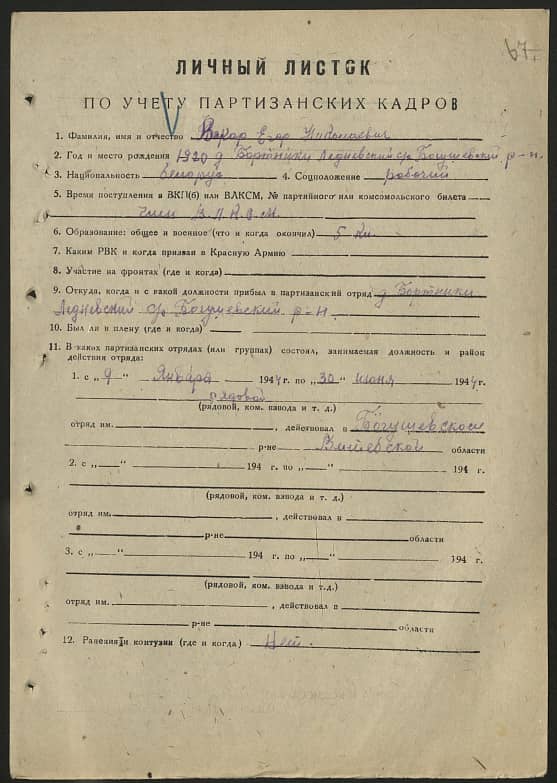 67.
ЛИЧНЫЙ ЛИСТОК
ПО УЧЕТУ ПАРТИЗАНСКИХ КАДРОВ
1. Фамилия, имя и отчество Егор Николаевич
2. Год и место рождения 1920 д Бортники Ледневский с/с Богушевский р-н.
3. Национальность белорус 4. Соцположение рабочий
5. Время поступления в ВКП(б) или ВЛКСМ, № партийного или комсомольского билета
член В.Л.К.С.М.
6. Образование: общее и военное (что и когда окончил) 5 кл.
7. Каким РВК и когда призван в Красную Армию
8. Участие на фронтах (где и когда)
9. Откуда, когда и с какой должности прибыл в партизанский отряд д Бортники
Ледневский с/с Богушевский р-н.
10. Был ли в плену (где и когда)
11. В каких партизанских отрядах (или группах) состоял, занимаемая должность и район
действия отряда:
1. с „9“ Января 1944 г. по „30“ июня 1944 г.
рядовой
(рядовой, ком. взвода и т. д.)
отряд им. , действовал в Богушевском
р-не Витебской области
2. с „—“ 194 г. по „—“ 194 г.
(рядовой, ком. взвода и т. д.)
отряд им. , действовал в
р-не области
3. с „—“ 194 г. по „—“ 194 г.
(рядовой, ком. взвода и т.д.)
отряд им. , действовал в
р-не области
12. Ранения и контузии (где и когда) Нет.